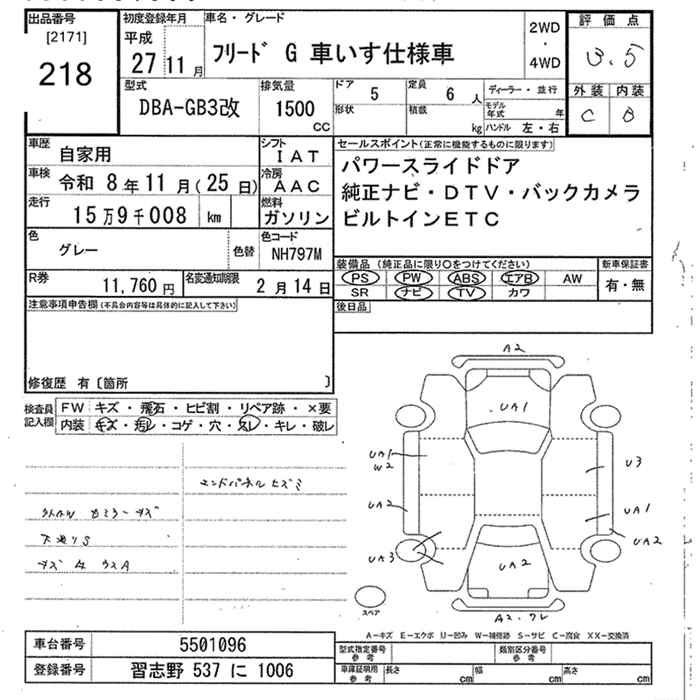 出品番号
[2171]
218
初度登録年月
平成
27 11 月
車名・グレード
フリード G 車いす仕様車
2WD
・
4WD
評価点
3.5
外装 内装
C B
型式
DBA-GB3改
排気量
1500
CC
ドア 5
定員 6 人
形状
積載 kg
ディーラー・並行
モデル年式 年
ハンドル 左・右
車歴 自家用
シフト IAT
車検 令和 8年 11月(25日)
冷房 AAC
走行 15万9千008 km
燃料 ガソリン
色 グレー
色替
色コード NH797M
R券 11,760円
名変通知期限 2月14日
セールスポイント(正常に機能するものに限ります)
パワースライドドア
純正ナビ・DTV・バックカメラ
ビルトインETC
装備品 (純正品に限り○をつけてください)
PS PW ABS エアB AW
SR ナビ TV カワ
新車保証書
有・無
後日品
注意事項申告欄(不具合内容等は具体的に記入して下さい)
修復歴 有〔箇所 〕
検査員記入欄
FW キズ・飛石・ヒビ割・リペア跡・×要
内装 キズ・汚レ・コゲ・穴・スレ・キレ・破レ
エンドパネルヒズミ
A2
UA1
UA1
W2
UA2
UA3
U3
UA1
UA2
UA2
スペア
A-キズ E-エクボ U-凹み W-補修跡 S-サビ C-腐食 XX-交換済
車台番号 5501096
登録番号 習志野 537 に 1006
型式指定番号 参考
類別区分番号 参考
車庫証明用 参考
長さ cm
幅 cm
高さ cm